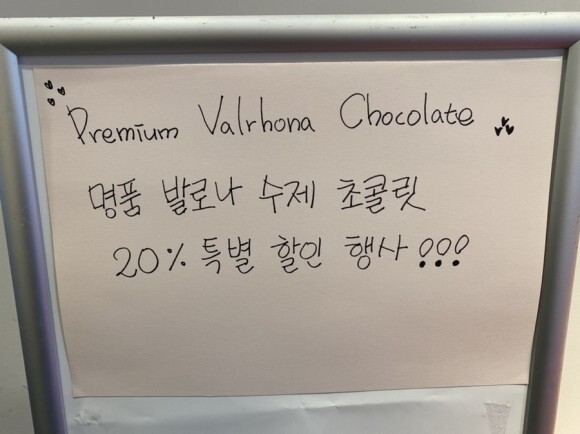 Premium Valrhona Chocolate
명품 발로나 수제 초콜릿
20% 특별 할인 행사!!!